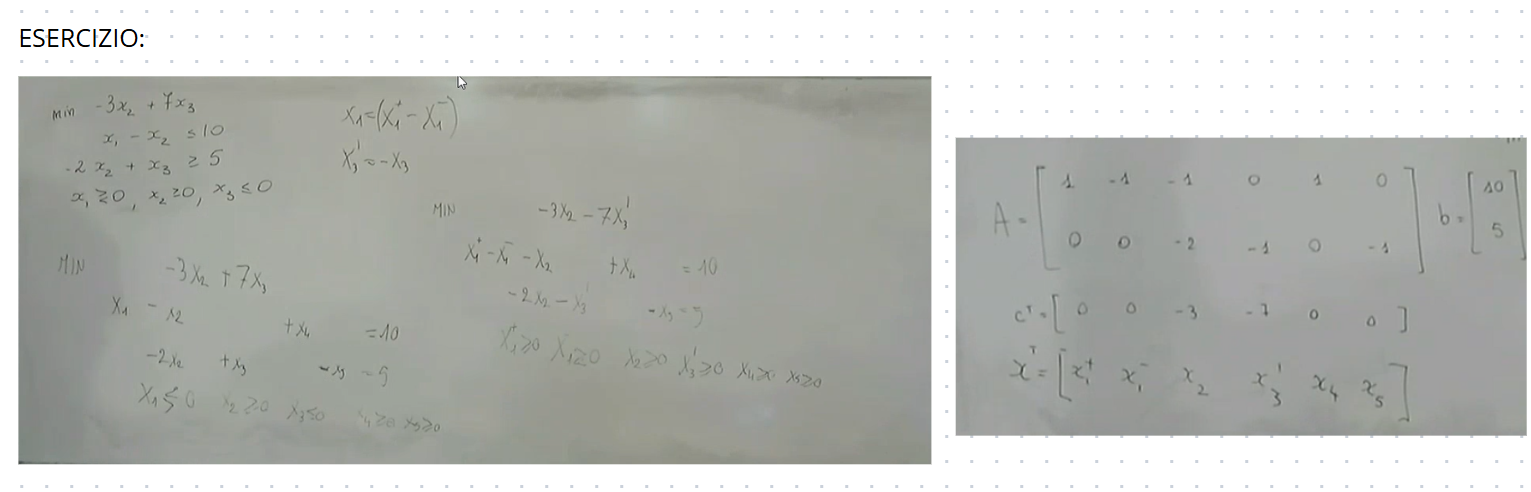 ESERCIZIO:
min -3x₂ + 7x₃
x₁ - x₂ ≤ 10
-2x₂ + x₃ ≥ 5
x₁ ≧ 0, x₂ ≥ 0, x₃ ≤ 0
x₁ = (x₁⁺ - x₁⁻)
x₃' = -x₃
MIN -3x₂ + 7x₃
x₁ - x₂ + x₄ = 10
-2x₂ + x₃ - x₅ = 5
x₁ ≶ 0 x₂ ≥ 0 x₃ ≤ 0 x₄ ≥ 0 x₅ ≥ 0
MIN -3x₂ - 7x₃'
x₁⁺ - x₁⁻ - x₂ + x₄ = 10
-2x₂ - x₃' - x₅ = 5
x₁⁺ ≥ 0 x₁⁻ ≥ 0 x₂ ≥ 0 x₃' ≥ 0 x₄ ≥ x₅ ≥ 0
A = [ 1 -1 -1 0 1 0 ] b = [ 10
0 0 -2 -1 0 -1 5 ]
cᵀ = [ 0 0 -3 -7 0 0 ]
xᵀ = [ x₁⁺ x₁⁻ x₂ x₃' x₄ x₅ ]